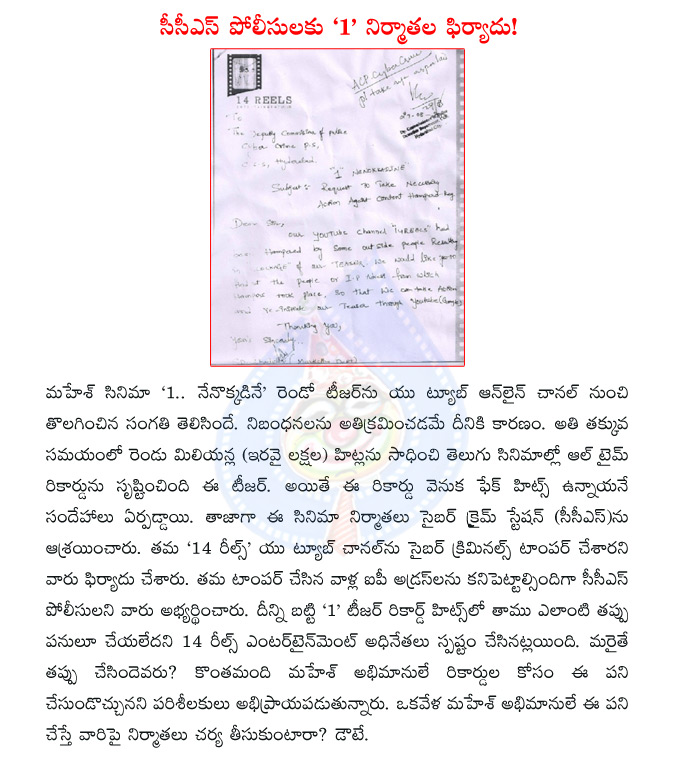 సీసీఎస్ పోలీసులకు ‘1’ నిర్మాతల ఫిర్యాదు!
ACP Cyber Crime
14 REELS
To
The Deputy Commissioner of police
Cyber Crime P.S,
Hyderabad.
"1" NENOKKADINE
Subject : Request To Take Necessary
Action Against Content Hampering
Dear Sir,
our YOUTUBE Channel "14REELS" had
one Hampered by Some out side people Resulting
of our "TEASER". We would like you to
the people or I.P from which
took place, so that we can take Action
our Teaser through Youtube
Thanking You,
Yours Sincerely..
మహేశ్ సినిమా ‘1.. నేనొక్కడినే’ రెండో టీజర్‌ను యు ట్యూబ్ ఆన్‌లైన్ చానల్ నుంచి
తొలగించిన సంగతి తెలిసిందే. నిబంధనలను అతిక్రమించడమే దీనికి కారణం. అతి తక్కువ
సమయంలో రెండు మిలియన్ల (ఇరవై లక్షల) హిట్లను సాధించి తెలుగు సినిమాల్లో ఆల్ టైమ్
రికార్డును సృష్టించింది ఈ టీజర్. అయితే ఈ రికార్డు వెనుక ఫేక్ హిట్స్ ఉన్నాయనే
సందేహాలు ఏర్పడ్డాయి. తాజాగా ఈ సినిమా నిర్మాతలు సైబర్ క్రైమ్ స్టేషన్ (సీసీఎస్)ను
ఆశ్రయించారు. తమ ‘14 రీల్స్’ యు ట్యూబ్ చానల్‌ను సైబర్ క్రిమినల్స్ టాంపర్ చేశారని
వారు ఫిర్యాదు చేశారు. తమ టాంపర్ చేసిన వాళ్ల ఐపీ అడ్రస్‌లను కనిపెట్టాల్సిందిగా సీసీఎస్
పోలీసులని వారు అభ్యర్థించారు. దీన్ని బట్టి ‘1’ టీజర్ రికార్డ్ హిట్స్‌లో తాము ఎలాంటి తప్పు
పనులూ చేయలేదని 14 రీల్స్ ఎంటర్‌టైన్‌మెంట్ అధినేతలు స్పష్టం చేసినట్లయింది. మరైతే
తప్పు చేసిందెవరు? కొంతమంది మహేశ్ అభిమానులే రికార్డుల కోసం ఈ పని
చేసుండొచ్చునని పరిశీలకులు అభిప్రాయపడుతున్నారు. ఒకవేళ మహేశ్ అభిమానులే ఈ పని
చేస్తే వారిపై నిర్మాతలు చర్య తీసుకుంటారా? డౌటే.